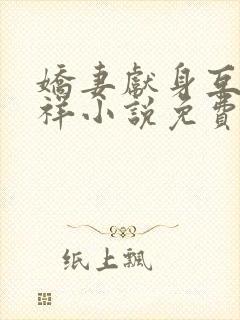 嬌妻獻身互
祥小說免費
纸上飄